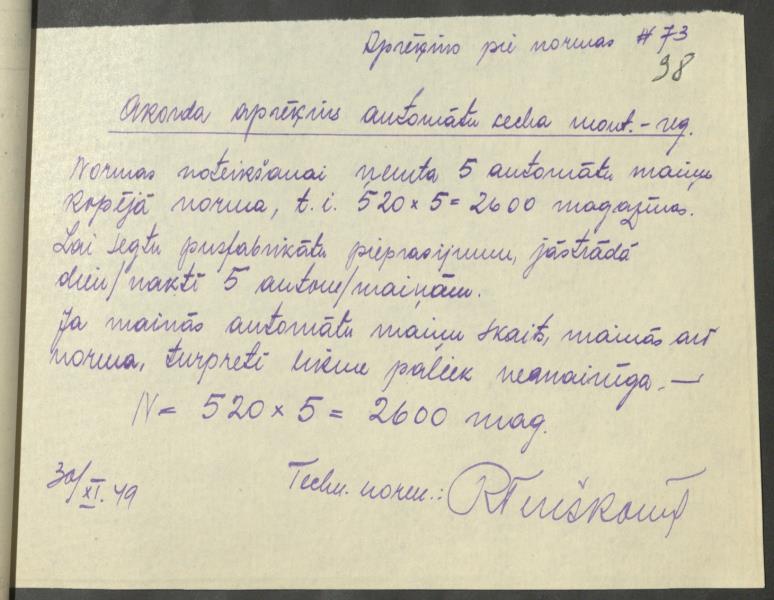 Aprēķins pie normas # 73
98
Akorda aprēķins automātu cecha mont.-reg.
Normas noteikšanai ņemta 5 automātu maiņu
kopējā norma, t.i. 520 x 5 = 2600 magazīnas.
Lai segtu pusfabrikātu pieprasījumu, jāstrādā
dien/naktī 5 autom/maiņām.
Ja mainās automātu maiņu skaits, mainās arī
norma, turpretī likme paliek nemainīga. —
N = 520 x 5 = 2600 mag.
30/XI. 49
Techn. norm.: